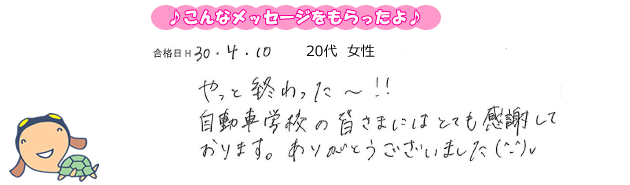 ♪こんなメッセージをもらったよ♪
合格日 H 30・4・10 20代 女性
やっと終わった〜!!
自動車学校の皆さまにはとても感謝して
おります。ありがとうございました(^-^)v